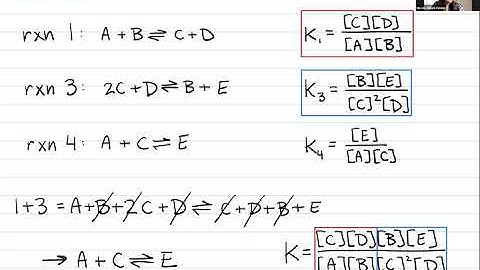 rxn 1: A + B ⇌ C + D K₁ = [C][D] / [A][B]
rxn 3: 2C + D ⇌ B + E K₃ = [B][E] / [C]²[D]
rxn 4: A + C ⇌ E K₄ = [E] / [A][C]
1+3 = A + B + 2C + D ⇌ C + D + B + E
→ A + C ⇌ E K = [C][D][B][E] / [A][B][C]²[D]